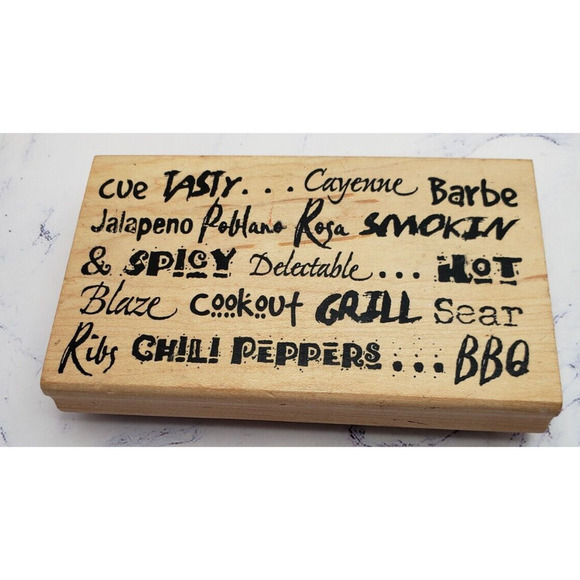 cue TASTY... Cayenne Barbe
Jalapeno Poblano Rosa SMOKIN
& SPICY Delectable... HOT
Blaze Cookout GRILL Sear
Ribs CHILI PEPPERS... BBQ